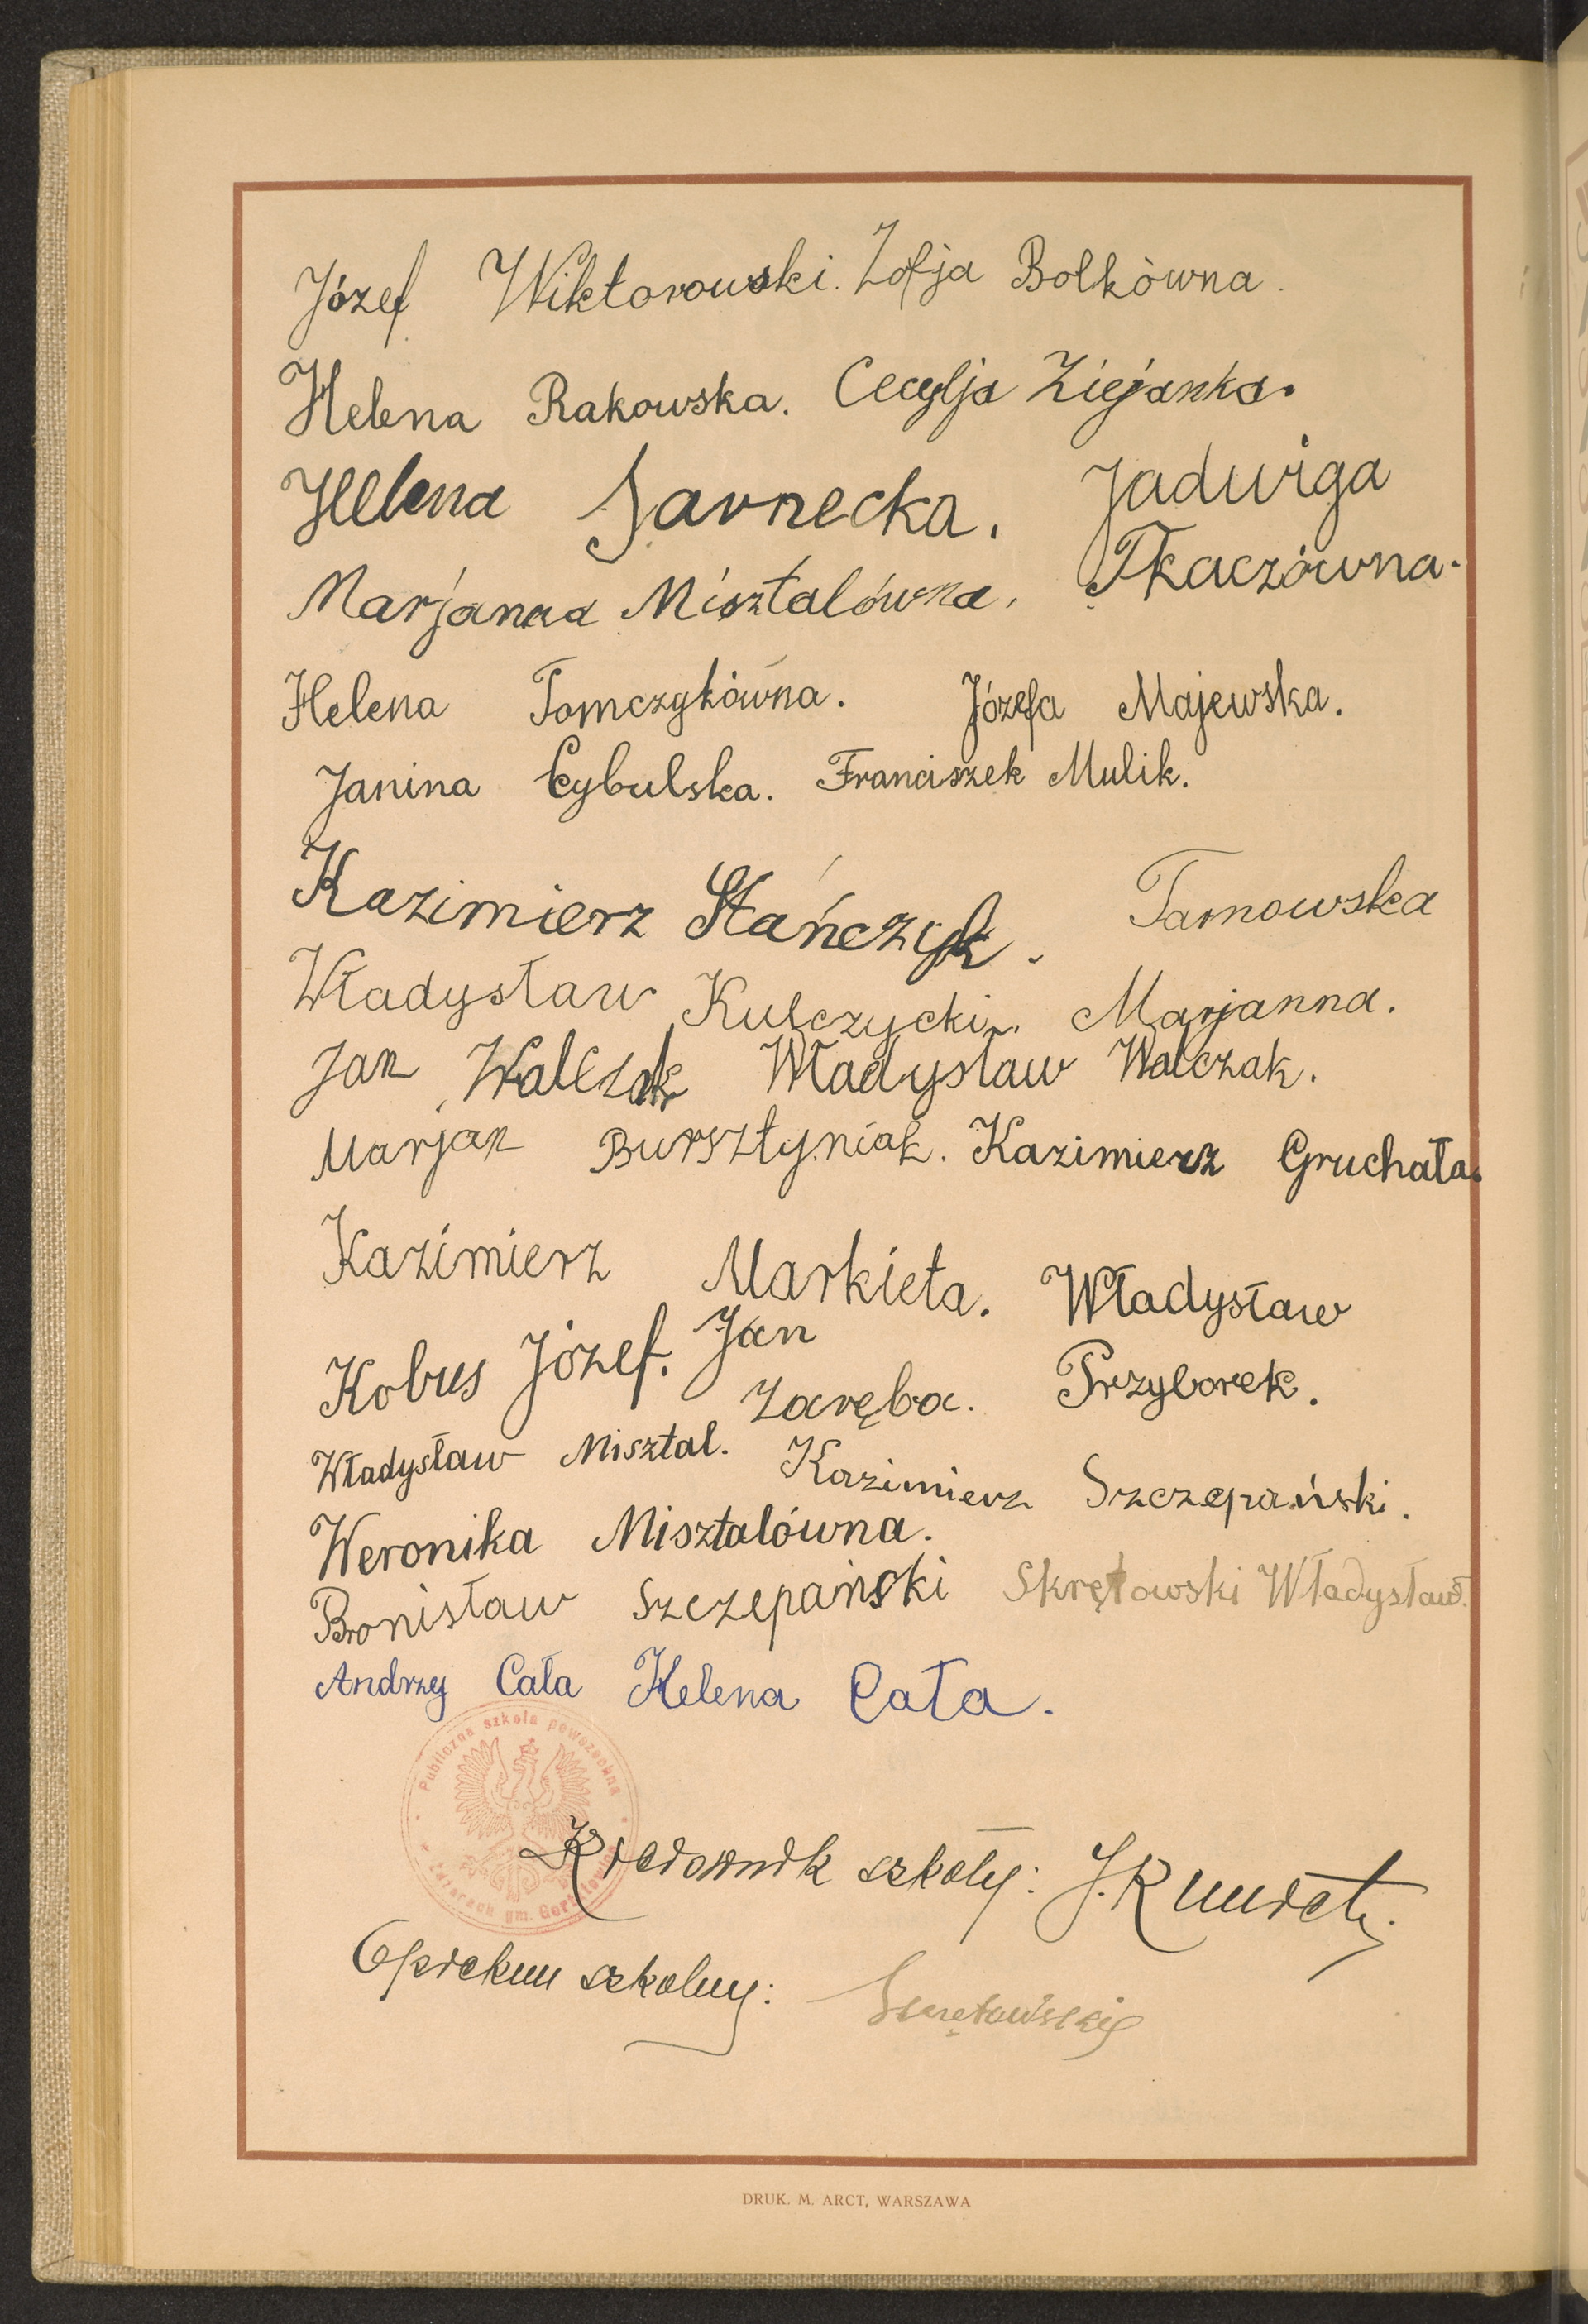 Józef Wiktorowski. Zofja Bolkówna.
Helena Rakowska. Cecylja Ziejanka.
Helena Jarnecka. Jadwiga
Marjanna Misztalówna. Tkaczówna.
Helena Tomczykówna. Józefa Majewska.
Janina Cybulska. Franciszek Mulik.
Kazimierz Stańczyk. Tarnowska
Władysław Kulczycki. Marjanna.
Jan Walczak Władysław Walczak.
Marjan Bursztyniak. Kazimierz Gruchała.
Kazimierz Markieta. Władysław
Kobus Józef. Jan
Zaręba. Przyborek.
Władysław Misztal. Kazimierz Szczepański.
Weronika Misztalówna.
Bronisław Szczepański Skrętowski Władysław.
Andrzej Cała Helena Cała.
Publiczna szkoła powszechna
gm.
Kierownik szkoły:
Opiekun szkolny: Skrętowski
DRUK. M. ARCT, WARSZAWA